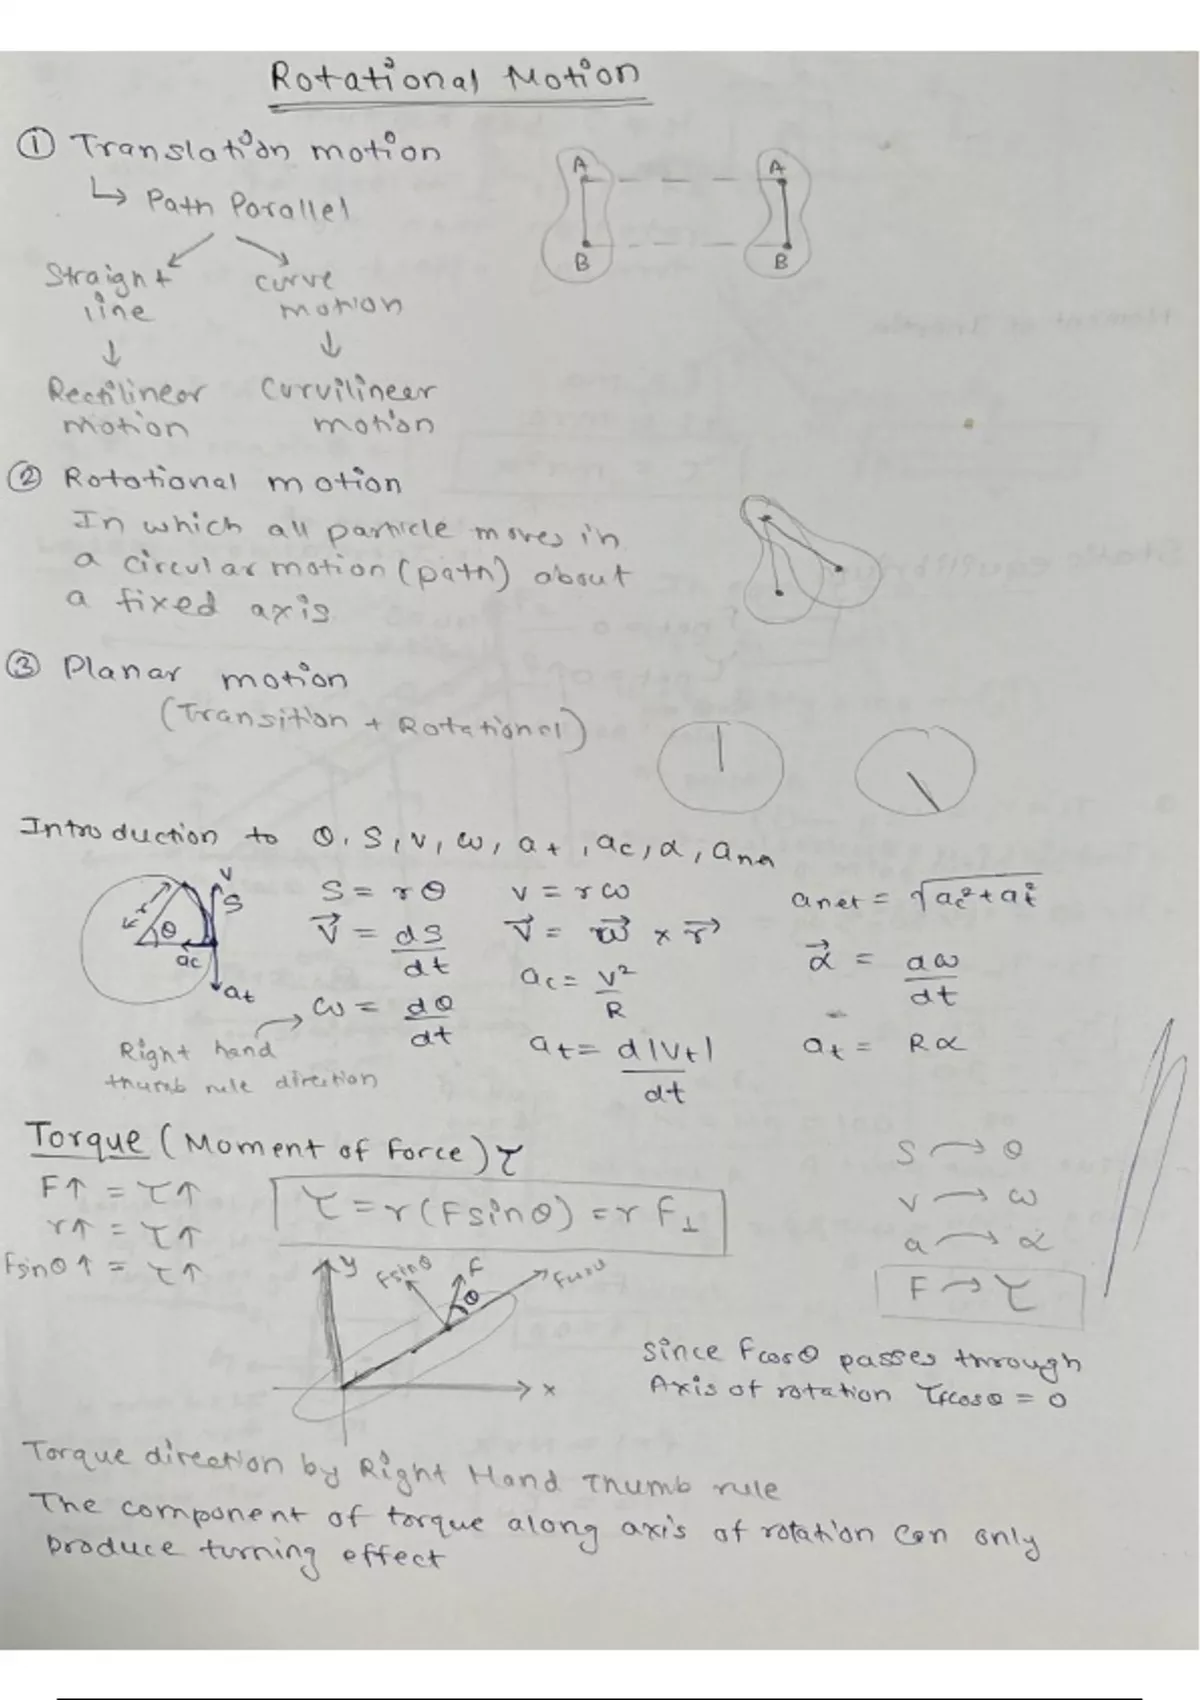 Rotational Motion
① Translation motion
↳ Path Parallel
Straight line
curve motion
↓ ↓
Rectilinear motion
Curvilinear motion
A A
B B
② Rotational motion
In which all particle moves in
a circular motion (path) about
a fixed axis
③ Planar motion
(Transition + Rotational)
Introduction to θ, S, v, ω, at, ac, α, anet
v
S
r
θ
ac
at
S = rθ
v⃗ = dS/dt
ω = dθ/dt
Right hand
thumb rule direction
v = rω
v⃗ = ω⃗ × r⃗
ac = v²/R
at = d|Vt|/dt
anet = √(ac² + at²)
α⃗ = dω/dt
at = Rα
Torque (Moment of force) τ
F↑ = τ↑
r↑ = τ↑
Fsinθ↑ = τ↑
τ = r(Fsinθ) = r F⊥
S → θ
v → ω
a → α
F → τ
y
Fsinθ
F
θ
Fcosθ
x
since Fcosθ passes through
Axis of rotation τFcosθ = 0
Torque direction by Right Hand Thumb rule
The component of torque along axis of rotation can only
produce turning effect